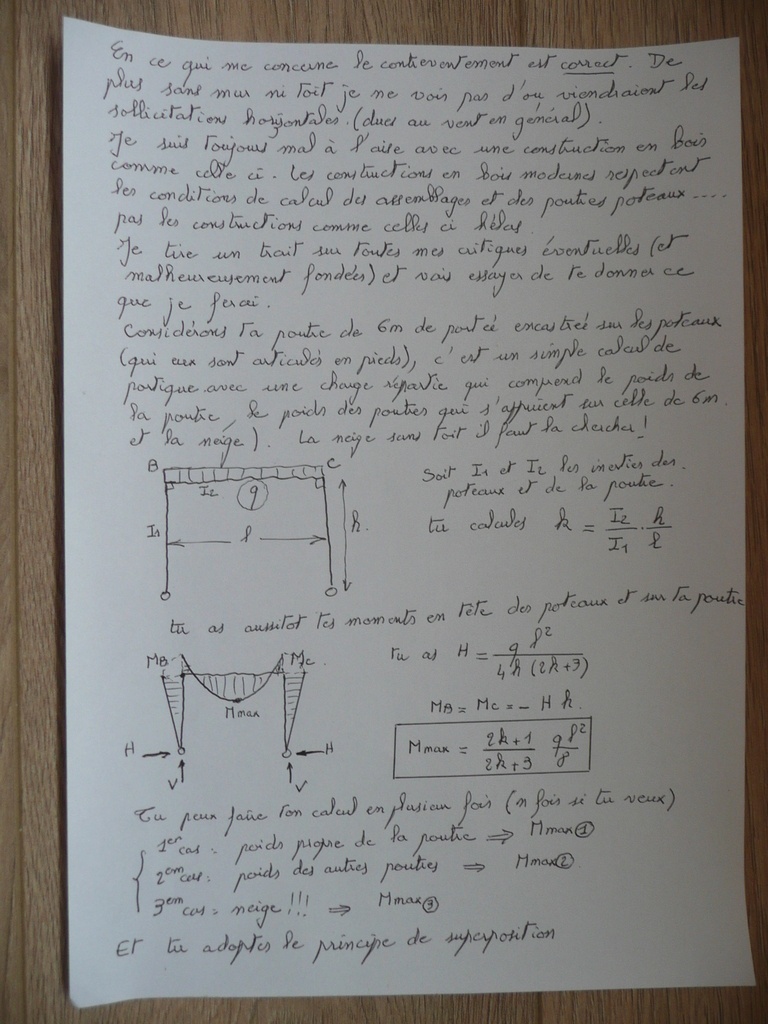 En ce qui me concerne le contreventement est correct. De
plus sans mur ni toit je ne vois pas d'ou viendraient les
sollicitations horizontales. (dues au vent en général).
Je suis toujours mal à l'aise avec une construction en bois
comme celle ci. Les constructions en bois modernes respectent
les conditions de calcul des assemblages et des poutres poteaux ....
pas les constructions comme celles ci hélas.
Je tire un trait sur toutes mes critiques éventuelles (et
malheureusement fondées) et vais essayer de te donner ce
que je ferai.
Considérons ta poutre de 6m de portée encastrée sur les poteaux
(qui eux sont articulés en pieds), c'est un simple calcul de
portique avec une charge répartie qui comprend le poids de
la poutre, le poids des poutres qui s'appuient sur celle de 6m.
et la neige). La neige sans toit il faut la chercher!
B C
I2 q
I1 l h.
Soit I1 et I2 les inerties des
poteaux et de la poutre.
tu calcules k = I2/I1 . h/l
tu as aussitot tes moments en tête des poteaux et sur ta poutre
MB Mc
Mmax
H H
V V
tu as H = q l²/4h (2k+3)
MB = Mc = - H h.
Mmax = 2k+1/2k+3 q l²/8
Tu peux faire ton calcul en plusieur fois (n fois si tu veux)
1er cas = poids propre de la poutre ⇒ Mmax ①
2em cas = poids des autres poutres ⇒ Mmax ②
3em cas = neige !!! ⇒ Mmax ③
Et tu adoptes le principe de superposition